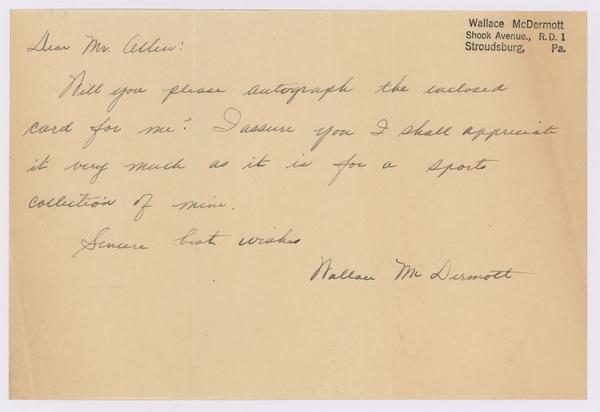 Wallace McDermott
Shook Avenue., R.D. 1
Stroudsburg, Pa.
Dear Mr. Allen:
Will you please autograph the enclosed
card for me? I assure you I shall appreciate
it very much as it is for a sports
collection of mine.
Sincere best wishes
Wallace McDermott